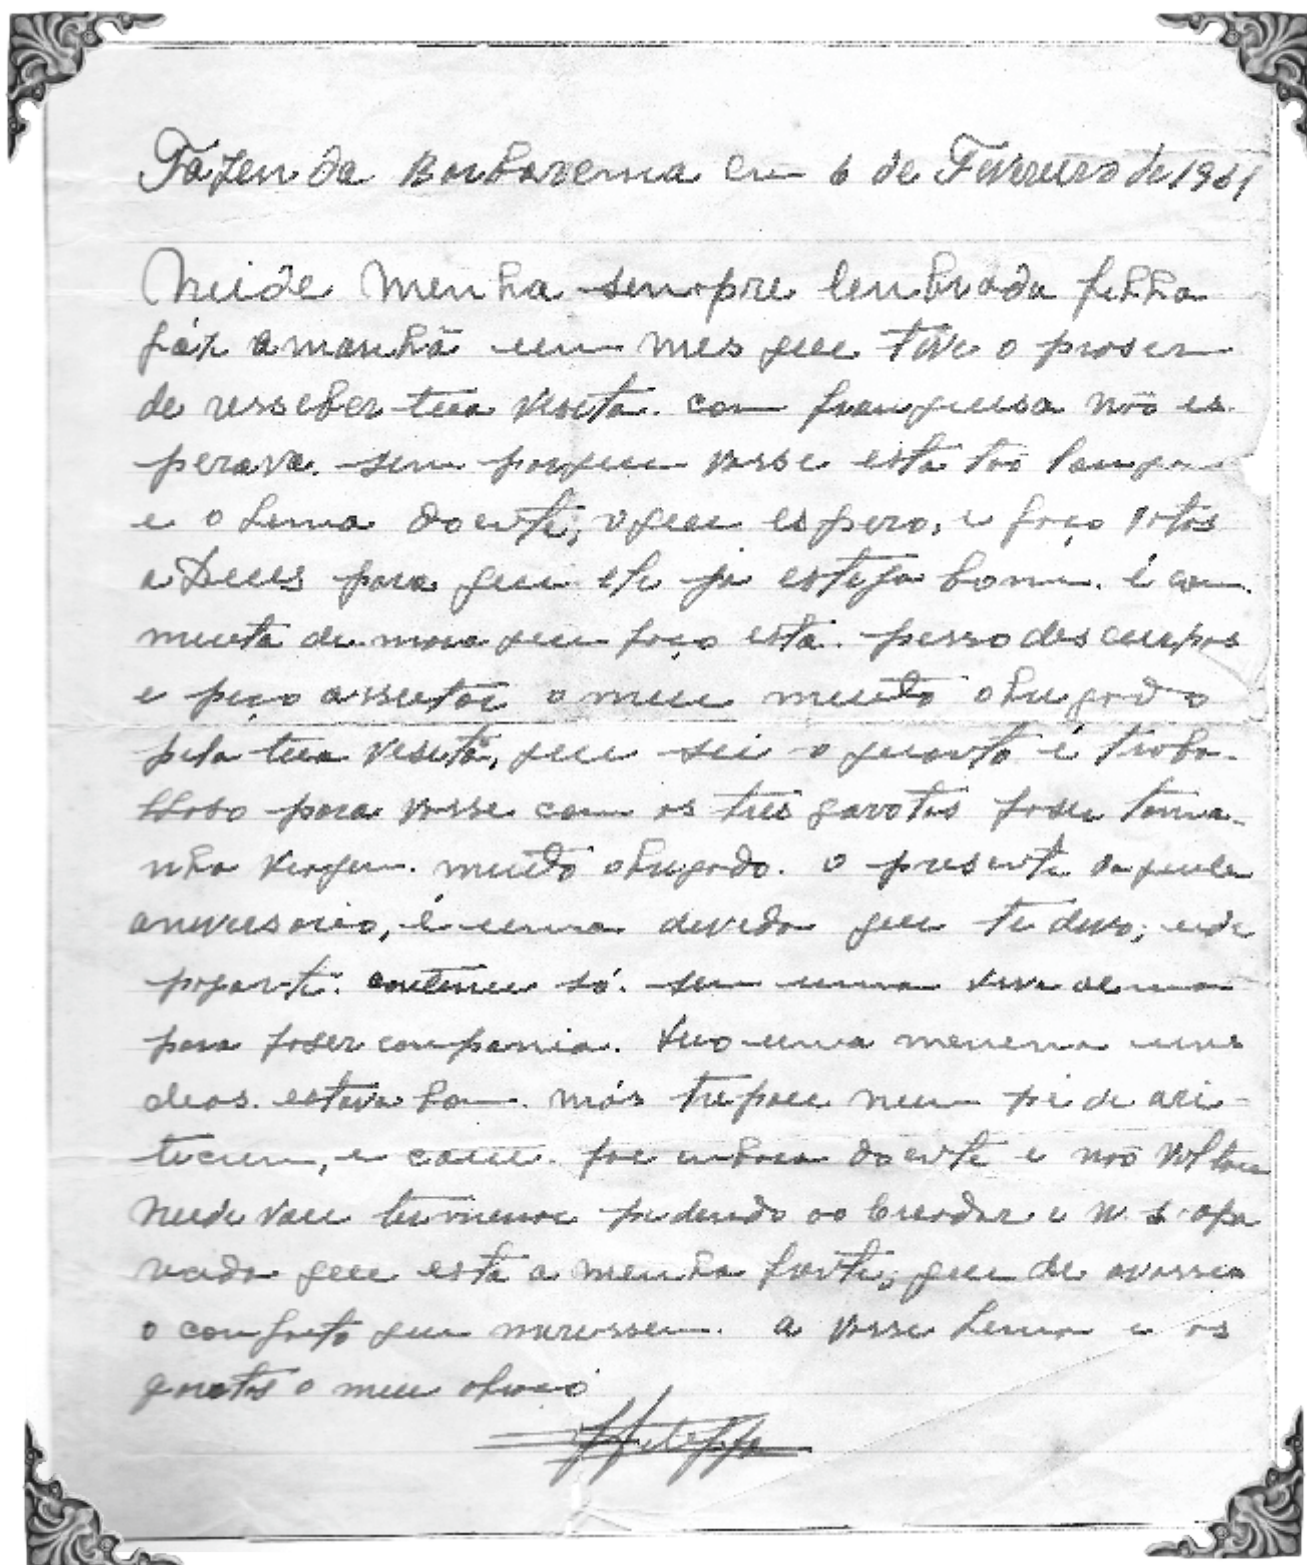 Fazenda Barbarema em 6 de Fevereiro de 1961
Neide Menha sempre lenbrada filha
fáz amanhã um mes que tive o praser
de resseber tua visita. com franquesa não es
perava. sim porque vosse esta tão longe
e o Lima doente, o que espero, e faço votos
a Deus para que ele ja esteja bom. é com
muita demora que faço esta. pesso desculpas
e peço asseitar o meu muito obrigado
pela tua visita, que sei o quanto é traba-
lhoso para vosse com os três garotos faser tama-
nha viagem. muito obrigado. o presente daquele
aniversario, é uma divida que te devo,
pagar-te. continuo só. sem uma viva alma
para faser compania. tive uma menina uns
dias. estava bom. más trepou num pé de ari-
ticum, e caiu. foi embora doente e não voltou
Neide vou terminar pedindo ao Creador e N. S. apa
recida que esta a menha frente, que de avosses
o conforto que meressem. a vosse Lima e os
garotos o meu abraço